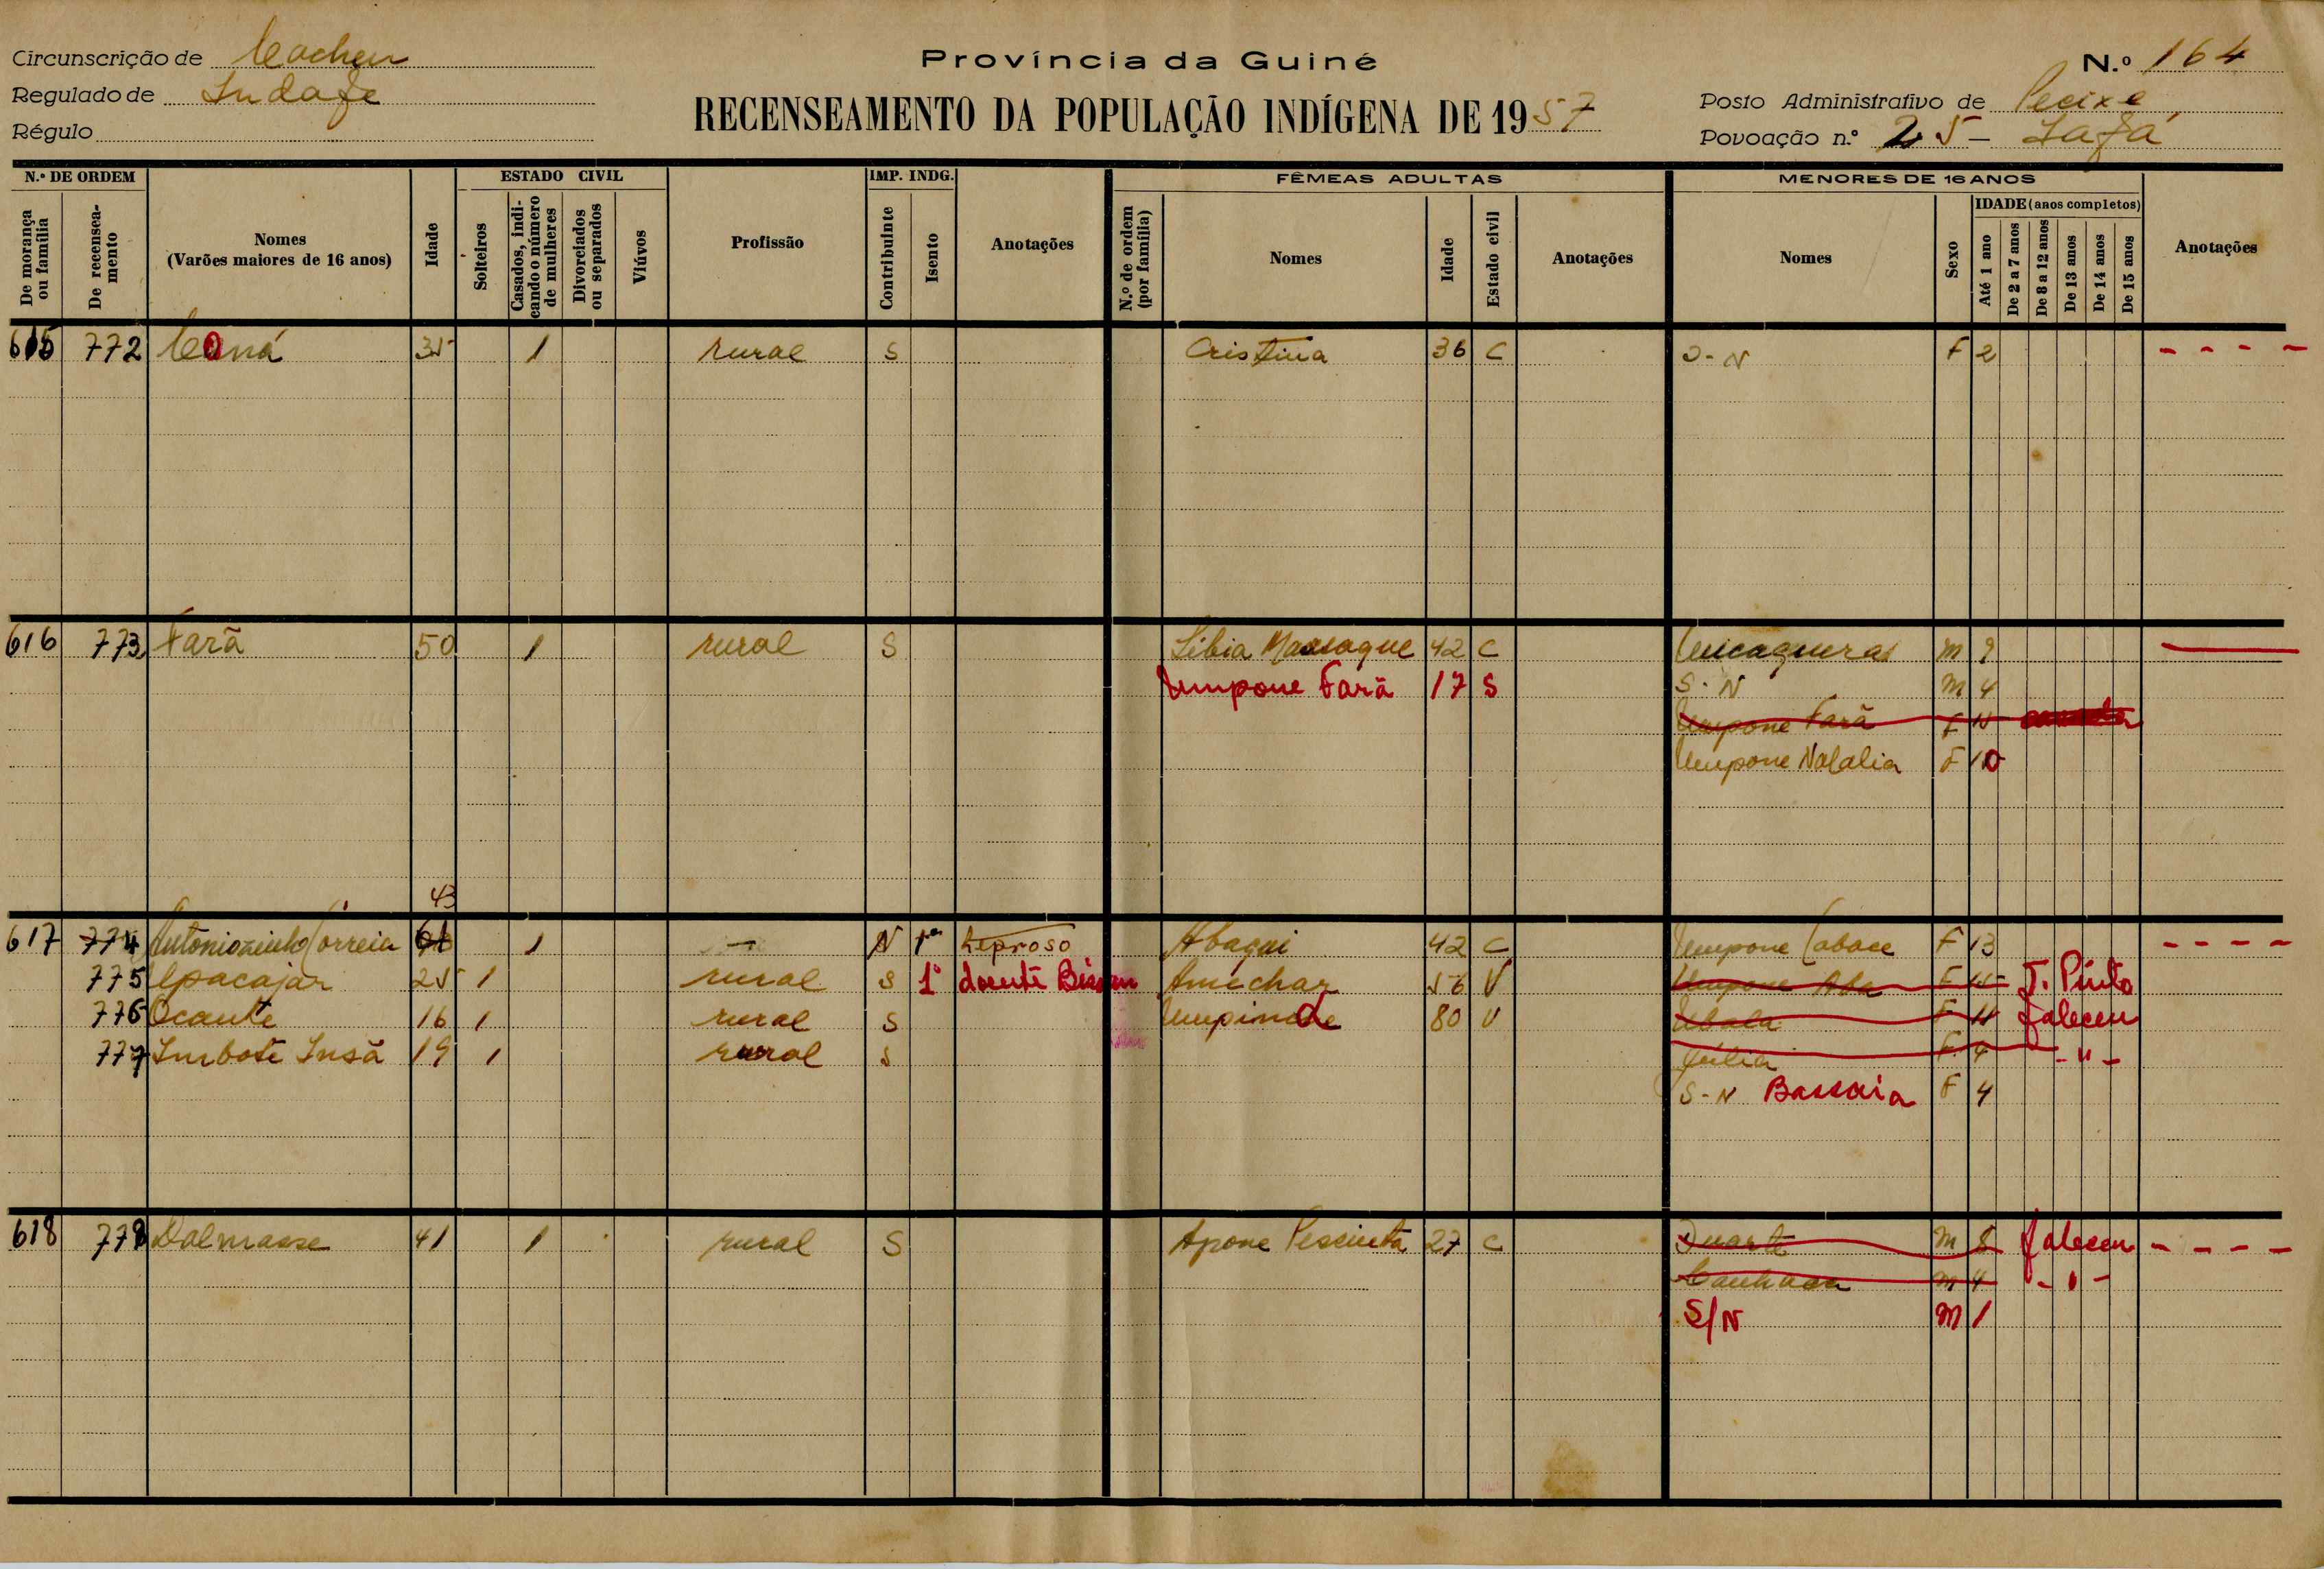 Circunscrição de Cacheu
Regulado de Indafe
Régulo
Província da Guiné
RECENSEAMENTO DA POPULAÇÃO INDÍGENA DE 1957
N.º 164
Posto Administrativo de Pecixe
Povoação n.º 25 - Lafá
N.º DE ORDEM
De morança ou família
De recenseamento
Nomes
(Varões maiores de 16 anos)
Idade
ESTADO CIVIL
Solteiros
Casados, indicando o número de mulheres
Divorciados ou separados
Viúvos
Profissão
IMP. INDG.
Contribuinte
Isento
Anotações
FÊMEAS ADULTAS
N.º de ordem (por família)
Nomes
Idade
Estado civil
Anotações
MENORES DE 16 ANOS
Nomes
Sexo
IDADE (anos completos)
Até 1 ano
De 2 a 7 anos
De 8 a 12 anos
De 13 anos
De 14 anos
De 15 anos
Anotações
615 772 35 1 rural S Cristina 36 C S-N F 2 - - - -
616 773 Fará 50 1 rural S Libia 42 C M 9
Umpone Fará 17 S S-N M 4
Umpone Fará F
Umpone Natalia F 10
43
617 774 Antoniozinho Correia 1 - N 1º Leproso Abaqui 42 C Umpone Cabace F 13 - - - -
775 Upacajar 25 1 rural S 1º doente Bissau Amechar 56 V Umpone Aba F J. Pinto
776 Ocante 16 1 rural S 80 V Ubala F 11 faleceu
777 Imbote Insã 19 1 rural S Júlia F 4 - " -
S-N Bassaia F 4
618 778 Dalmasse 41 1 rural S Apone 27 C Duarte M 8 faleceu - - - -
M 4 - " -
S/N M 1